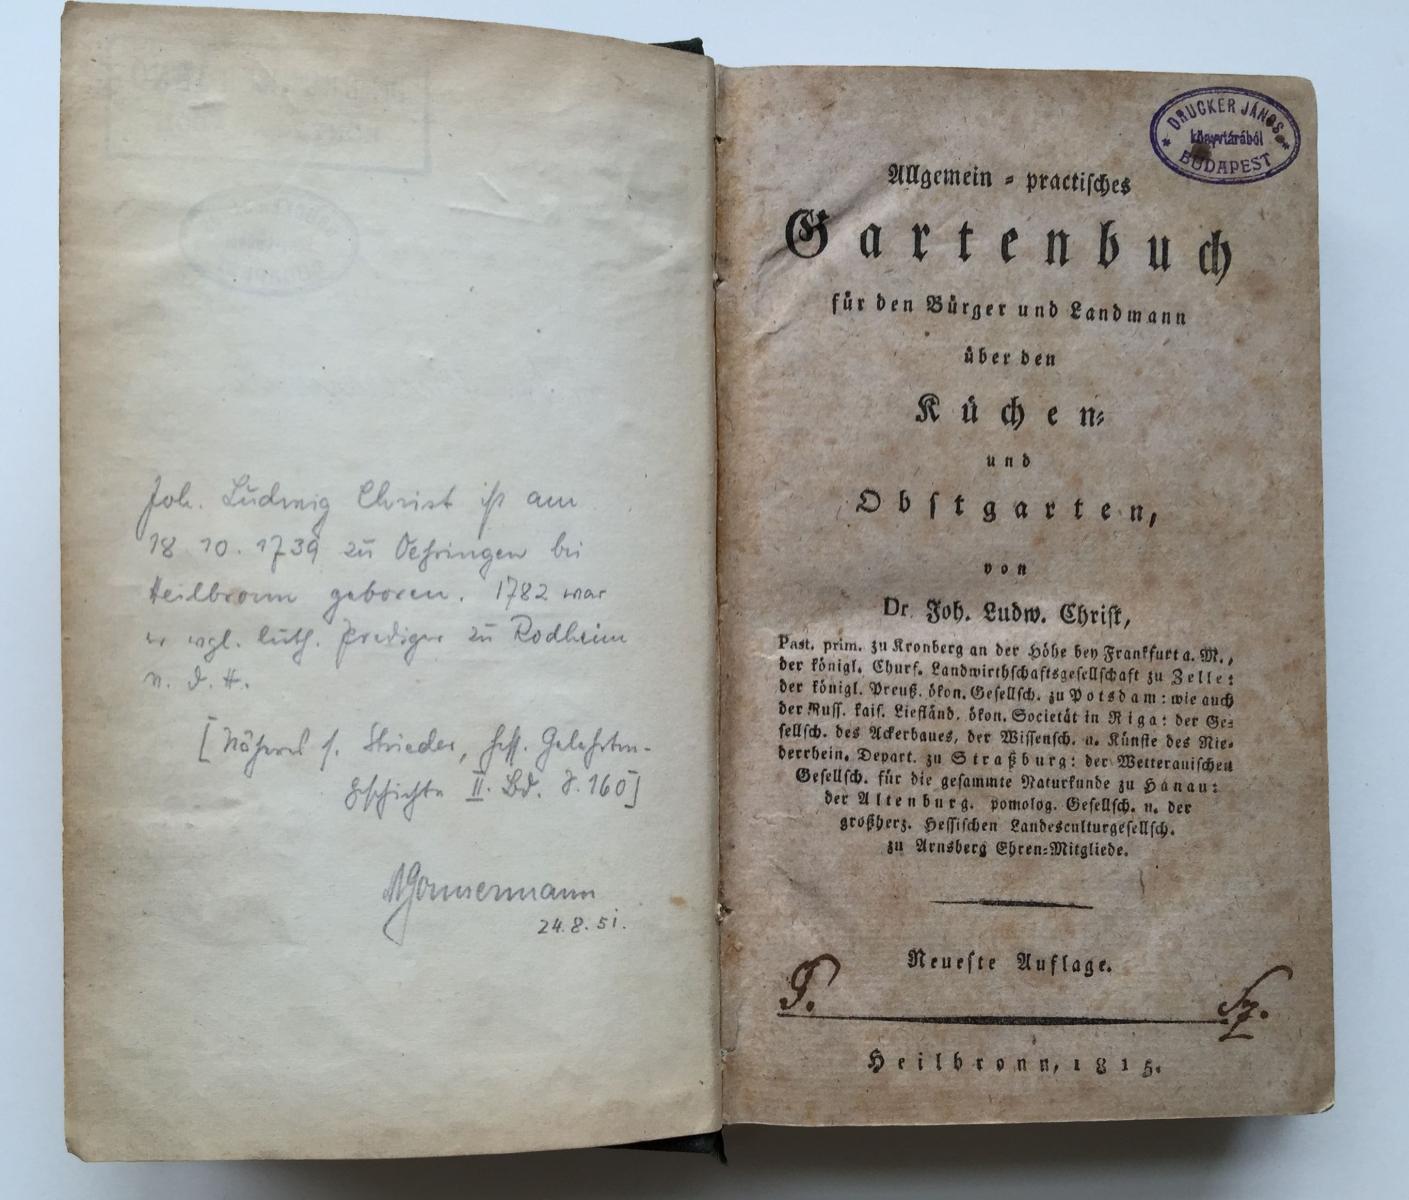 Joh. Ludwig Christ ist am
18.10.1739 zu Oehringen bei
Heilbronn geboren. 1782 war
er evgl. luth. Prediger zu Rodheim
v. d. H.
[Näheres s. Strieder, hess. Gelehrten-
geschichte II. Bd. S. 160]
Gonnermann
24.8.51.
DRUCKER JÁNOS
könyvtárából
BUDAPEST
Allgemein-practisches
Gartenbuch
für den Bürger und Landmann
über den
Küchen-
und
Obstgarten,
von
Dr. Joh. Ludw. Christ,
Past. prim. zu Kronberg an der Höhe bey Frankfurt a. M.,
der königl. Churf. Landwirthschaftsgesellschaft zu Zelle:
der königl. Preuß. ökon. Gesellsch. zu Potsdam: wie auch
der Russ. kais. Liefländ. ökon. Societät in Riga: der Ge-
sellsch. des Ackerbaues, der Wissensch. u. Künste des Nie-
derrhein. Depart. zu Straßburg: der Wetterauischen
Gesellsch. für die gesammte Naturkunde zu Hanau:
der Altenburg. pomolog. Gesellsch. u. der
großherz. Hessischen Landesculturgesellsch.
zu Arnsberg Ehren-Mitgliede.
Neueste Auflage.
Heilbronn, 1815.